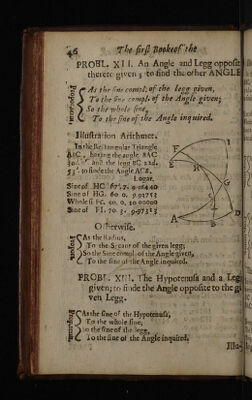 46 The first Booke of the
PROBL. XII. An Angle and Legg opposit
thereto given; to find the other ANGLE
As the sine compl. of the legg given,
To the sine compl. of the Angle given;
So the whole sine,
To the sine of the Angle inquired.
Illustration Arithmet.
In the Rectangular Triangle
ABC, having the angle BAC
and the legg BC
to finde the Angle ACB.
Logar.
Sine of HC 67. 7. 9.96440
Sine of HG. 60 0. 9.93753
Whole si FC. 90. 0, 10 00000
Sine of FI. 70. 3. 9.97313
Otherwise.
As the Radius,
To the Secant of the given legg;
So the Sine compl. of the Angle given,
To the sine of the Angle inquired.
PROBL. XIII. The Hypotenusa and a Leg
given; to finde the Angle opposite to the gi
ven Legg.
As the sine of the Hypotenusa,
To the whole sine,
So the sine of the legg,
To the sine of the Angle inquired.
Illu-
F
E
H
I
G
C
A
B
D